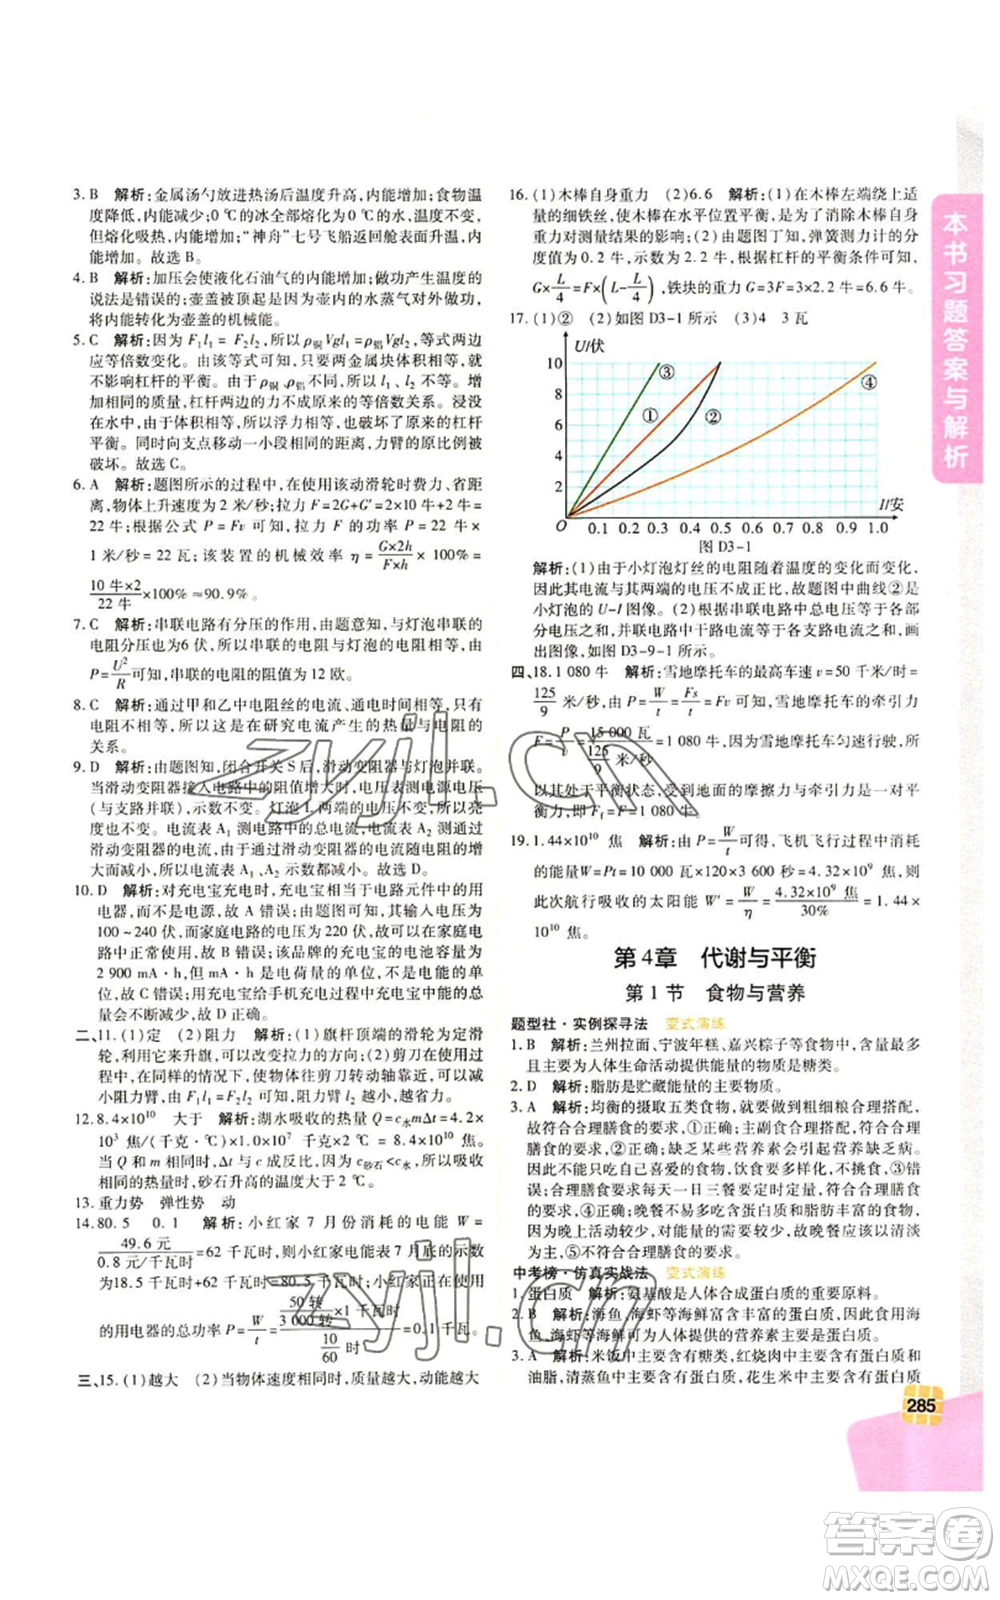 3. B 解析:金属汤勺放进热汤后温度升高,内能增加;食物温
度降低,内能减少;0 ℃的冰全部熔化为0 ℃的水,由于冰
熔化吸热,内能增加;“神舟”七号飞船返回舱表面升温,内
能增加。故选B。
4. B 解析:加压会使液化石油气的内能增加;做功产生温度的
说法是错误的;壶盖被顶起是由于壶内的水蒸气对外做功,
将内能转化为壶盖的机械能。
5. C 解析:因为 F₁l₁ = F₂l₂,所以ρ铜Vgl₁=ρ铝Vgl₂,等式两
边应等倍数变化。由该等式可知,即两金属块体积相同,
不影响杠杆的平衡。由于ρ铜、ρ铝不同,所以,l₁、l₂ 不相
同。相同的质量,杠杆两边的力与原来的不成倍数。浸没
在水中,由于所受浮力相同,也破坏了原来的杠杆
平衡。同时向支点移动一小段相同的距离,力臂的完全被
破坏。故选C。
6. A 解析:题图所示的过程中,使用该动滑轮费力、费功、省
距离,物体上升速度为2米/秒;拉力 F=2G+G′=22牛+2牛=
22牛;根据公式 P=Fv 可知,拉力 F 的功率 P=22牛×
1米/秒=22瓦;该装置的机械效率 η=G×2h/F×h×100%=
10牛×2/22牛×100%≈90.9%。
7. C 解析:串联电路有分压的作用,由题意知,与灯泡串联的
电阻分压也为6伏,所以串联的电阻与灯泡的电阻相等,由
P=U²/R可知,串联的电阻的阻值为12欧。
8. C 解析:通过甲和乙中电阻丝的电流、通电时间相等,
电阻不相等,所以这是在研究电流产生的热量与电阻的
关系。
9. D 解析:由题图知,闭合开关S后,滑动变阻器与灯泡并联。
当滑动变阻器接入电路中的阻值增大时,V电压表测电源电压
(与支路并联),示数不变。灯泡L两端的电压不变,所以亮
度不变。电流表A₁测电路中的总电流,电流表A₂测通过
滑动变阻器的电流,由于滑动变阻器的阻值增大,电流减
小,所以电流表A₁、A₂示数都减小。故选D。
10. D 解析:对充电宝充电时,充电宝相当于电路元件中的用
电器,而不是电源,故A错误;由题图可知,其输入电压为
100~240伏,而家庭电路的电压为220伏,故可以在家庭电
路中充电,故B错误;由题图可知,充电宝的电池容量为
2 900 mA·h,mA·h是电荷量的单位,而不是电能的单
位,故C错误;用充电宝给手机充电过程中,充电宝的电能
会不断减少,故D正确。
二、11.(1)定 (2)阻力 解析:(1)旗杆顶端的滑轮为定滑
轮,使用它来升旗,可以改变拉力的方向;(2)剪刀在使用
过程中,有经验的裁缝师傅总是把布料尽量往轴靠近,以
减小阻力臂 l₂,由 F₁l₁=F₂l₂ 知,阻力臂 l₂ 越小,越省力。
12. 8.4×10¹⁰ 大于 解析:湖水吸收的热量 Q=c水mΔt=4.2×
10³ 焦/(千克·℃)×1.0×10⁷ 千克×2 ℃ = 8.4×10¹⁰ 焦。
当 Q 和 m 相同时,Δt 与 c 成反比,因为c砂石<c水,所以吸收
相同热量,砂石升高的温度大于2 ℃。
13. 重力势 弹性势 动
14. 80.5 0.1 解析:小红家 7 月份消耗的电能 W =
49.6元/0.8元/千瓦时=62千瓦时,则小红家7月底的示数
为18.5千瓦时+62千瓦时=80.5千瓦时;小红家测量
的用电器的总功率 P=W/t=50转/3 000转×1千瓦时/10/60时=0.1千瓦。
三、15.(1)越大 (2)当物体速度相同时,质量越大,动能越大
16.(1)木棒自身重力 (2)6.6 解析:(1)在木棒左端绕上适
量的细铁丝,使木棒在水平位置平衡,是为了消除木棒自身
重力对测量结果的影响;(2)由题图可知,弹簧测力计的分
度值为0.2牛,示数为2.2牛,根据杠杆的平衡条件可知
G×L/4=F×(L-L/4),铁块的重力 G=3F=3×2.2牛=6.6牛。
17.(1)② (2)如图D3-1所示 (3)4 3瓦
U/伏
10
8
6
4
2
O
① ② ③ ④
I/安
0.1 0.2 0.3 0.4 0.5 0.6 0.7 0.8 0.9 1.0
图 D3-1
解析:(1)由于小灯泡灯丝的电阻随着温度的变化而变化,
因此其电流与其两端的电压不成正比,故题图中曲线②是
小灯泡的 U-I 图像。(2)根据串联电路中总电压等于各部
分电压之和,并联电路中干路电流等于各支路电流之和,画
出图像,如图D3-9-1所示。
四、18. 1 080牛 解析:雪地摩托车的最高车速 v=50千米/时=
125/9 米/秒,由 P=W/t=Fs/t=Fv 可知,雪地摩托车的牵引力
F=P/v=15 000瓦/125/9米/秒=1 080牛;因为雪地摩托车匀速行驶,所
以其处于平衡状态,受到地面的摩擦力与牵引力是一对平
衡力,即 Ff=F=1 080牛。
19. 1.44×10¹⁰ 焦 解析:由 P=W/t可得,飞机飞行过程中消耗
的能量 W=Pt=10 000瓦×120×3 600秒=4.32×10⁹ 焦,则
此次航行吸收的太阳能 W′=W/η=4.32×10⁹焦/30%=1.44×
10¹⁰ 焦。
第4章 代谢与平衡
第1节 食物与营养
题型社·实例探寻法 变式演练
1. B 解析:兰州拉面、宁波年糕、嘉兴粽子等食物中,含量最多
并为人体生命活动提供能量的物质是糖类。
2. D 解析:脂肪是贮藏能量的主要物质。
3. A 解析:均衡的摄取五类食物,主食应做到粗细粮合理搭配,
故做法符合合理膳食的要求,①正确;主副食合理搭配,也是
属于合理膳食,②正确;缺乏某些营养素会引起营养缺乏病,
因此不能只吃自己喜爱的食物,饮食要多样化,不挑食,③错
误;合理膳食还应做到一日三餐要有规律,不暴饮暴食,合理
营养,④错误;晚餐不易吃太多高能量的食物,由于晚饭后
活动较少,对能量的需要较少,故晚餐应该以清淡
为主,⑤符合合理膳食的要求。
中考榜·仿真实战法 变式演练
1. 蛋白质 解析:氨基酸是人体合成蛋白质的重要原料。
2. B 解析:海鱼、海虾等海鲜富含丰富的蛋白质,所以多食用海
鱼、海虾等海鲜可为人体提供的营养素主要是蛋白质。
3. A 解析:米饭中主要含有糖类,红烧肉中主要含有蛋白质和
油脂,清蒸鱼中主要含有蛋白质,花生米中主要含有蛋白质
本书习题答案与解析
285
zyjl.cn
zyjl.cn
答案圈
MXQE.COM